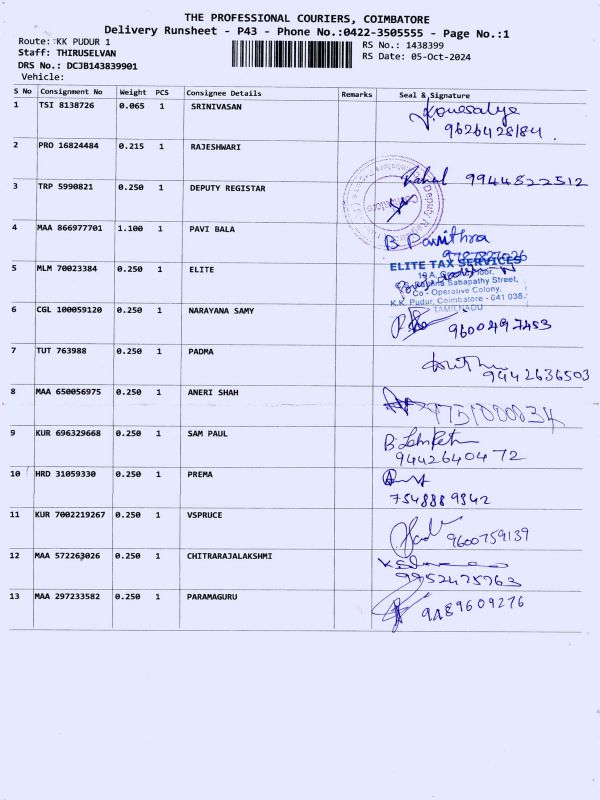 THE PROFESSIONAL COURIERS, COIMBATORE
Delivery Runsheet - P43 - Phone No.:0422-3505555 - Page No.:1
Route: KK PUDUR 1
Staff: THIRUSELVAN
DRS No.: DCJB143839901
Vehicle:
RS No.: 1438399
RS Date: 05-Oct-2024
S No Consignment No Weight PCS Consignee Details Remarks Seal & Signature
1 TSI 8138726 0.065 1 SRINIVASAN
9626428184
2 PRO 16824484 0.215 1 RAJESHWARI
Rahul 9944822512
3 TRP 5990821 0.250 1 DEPUTY REGISTAR
Deputy Registrar
Coimbatore
4 MAA 866977701 1.100 1 PAVI BALA
B Pavithra
5 MLM 70023384 0.250 1 ELITE
ELITE TAX SERVICES
Sabapathy Street,
Co - Operative Colony,
K.K. Pudur, Coimbatore - 641 038.
TAMILNADU
6 CGL 100059120 0.250 1 NARAYANA SAMY
9600497453
7 TUT 763988 0.250 1 PADMA
9442636503
8 MAA 650056975 0.250 1 ANERI SHAH
9751000034
9 KUR 696329668 0.250 1 SAM PAUL
9442640472
10 HRD 31059330 0.250 1 PREMA
7548889342
11 KUR 7002219267 0.250 1 VSPRUCE
9600759139
12 MAA 572263026 0.250 1 CHITRARAJALAKSHMI
9952475763
13 MAA 297233582 0.250 1 PARAMAGURU
9489609276